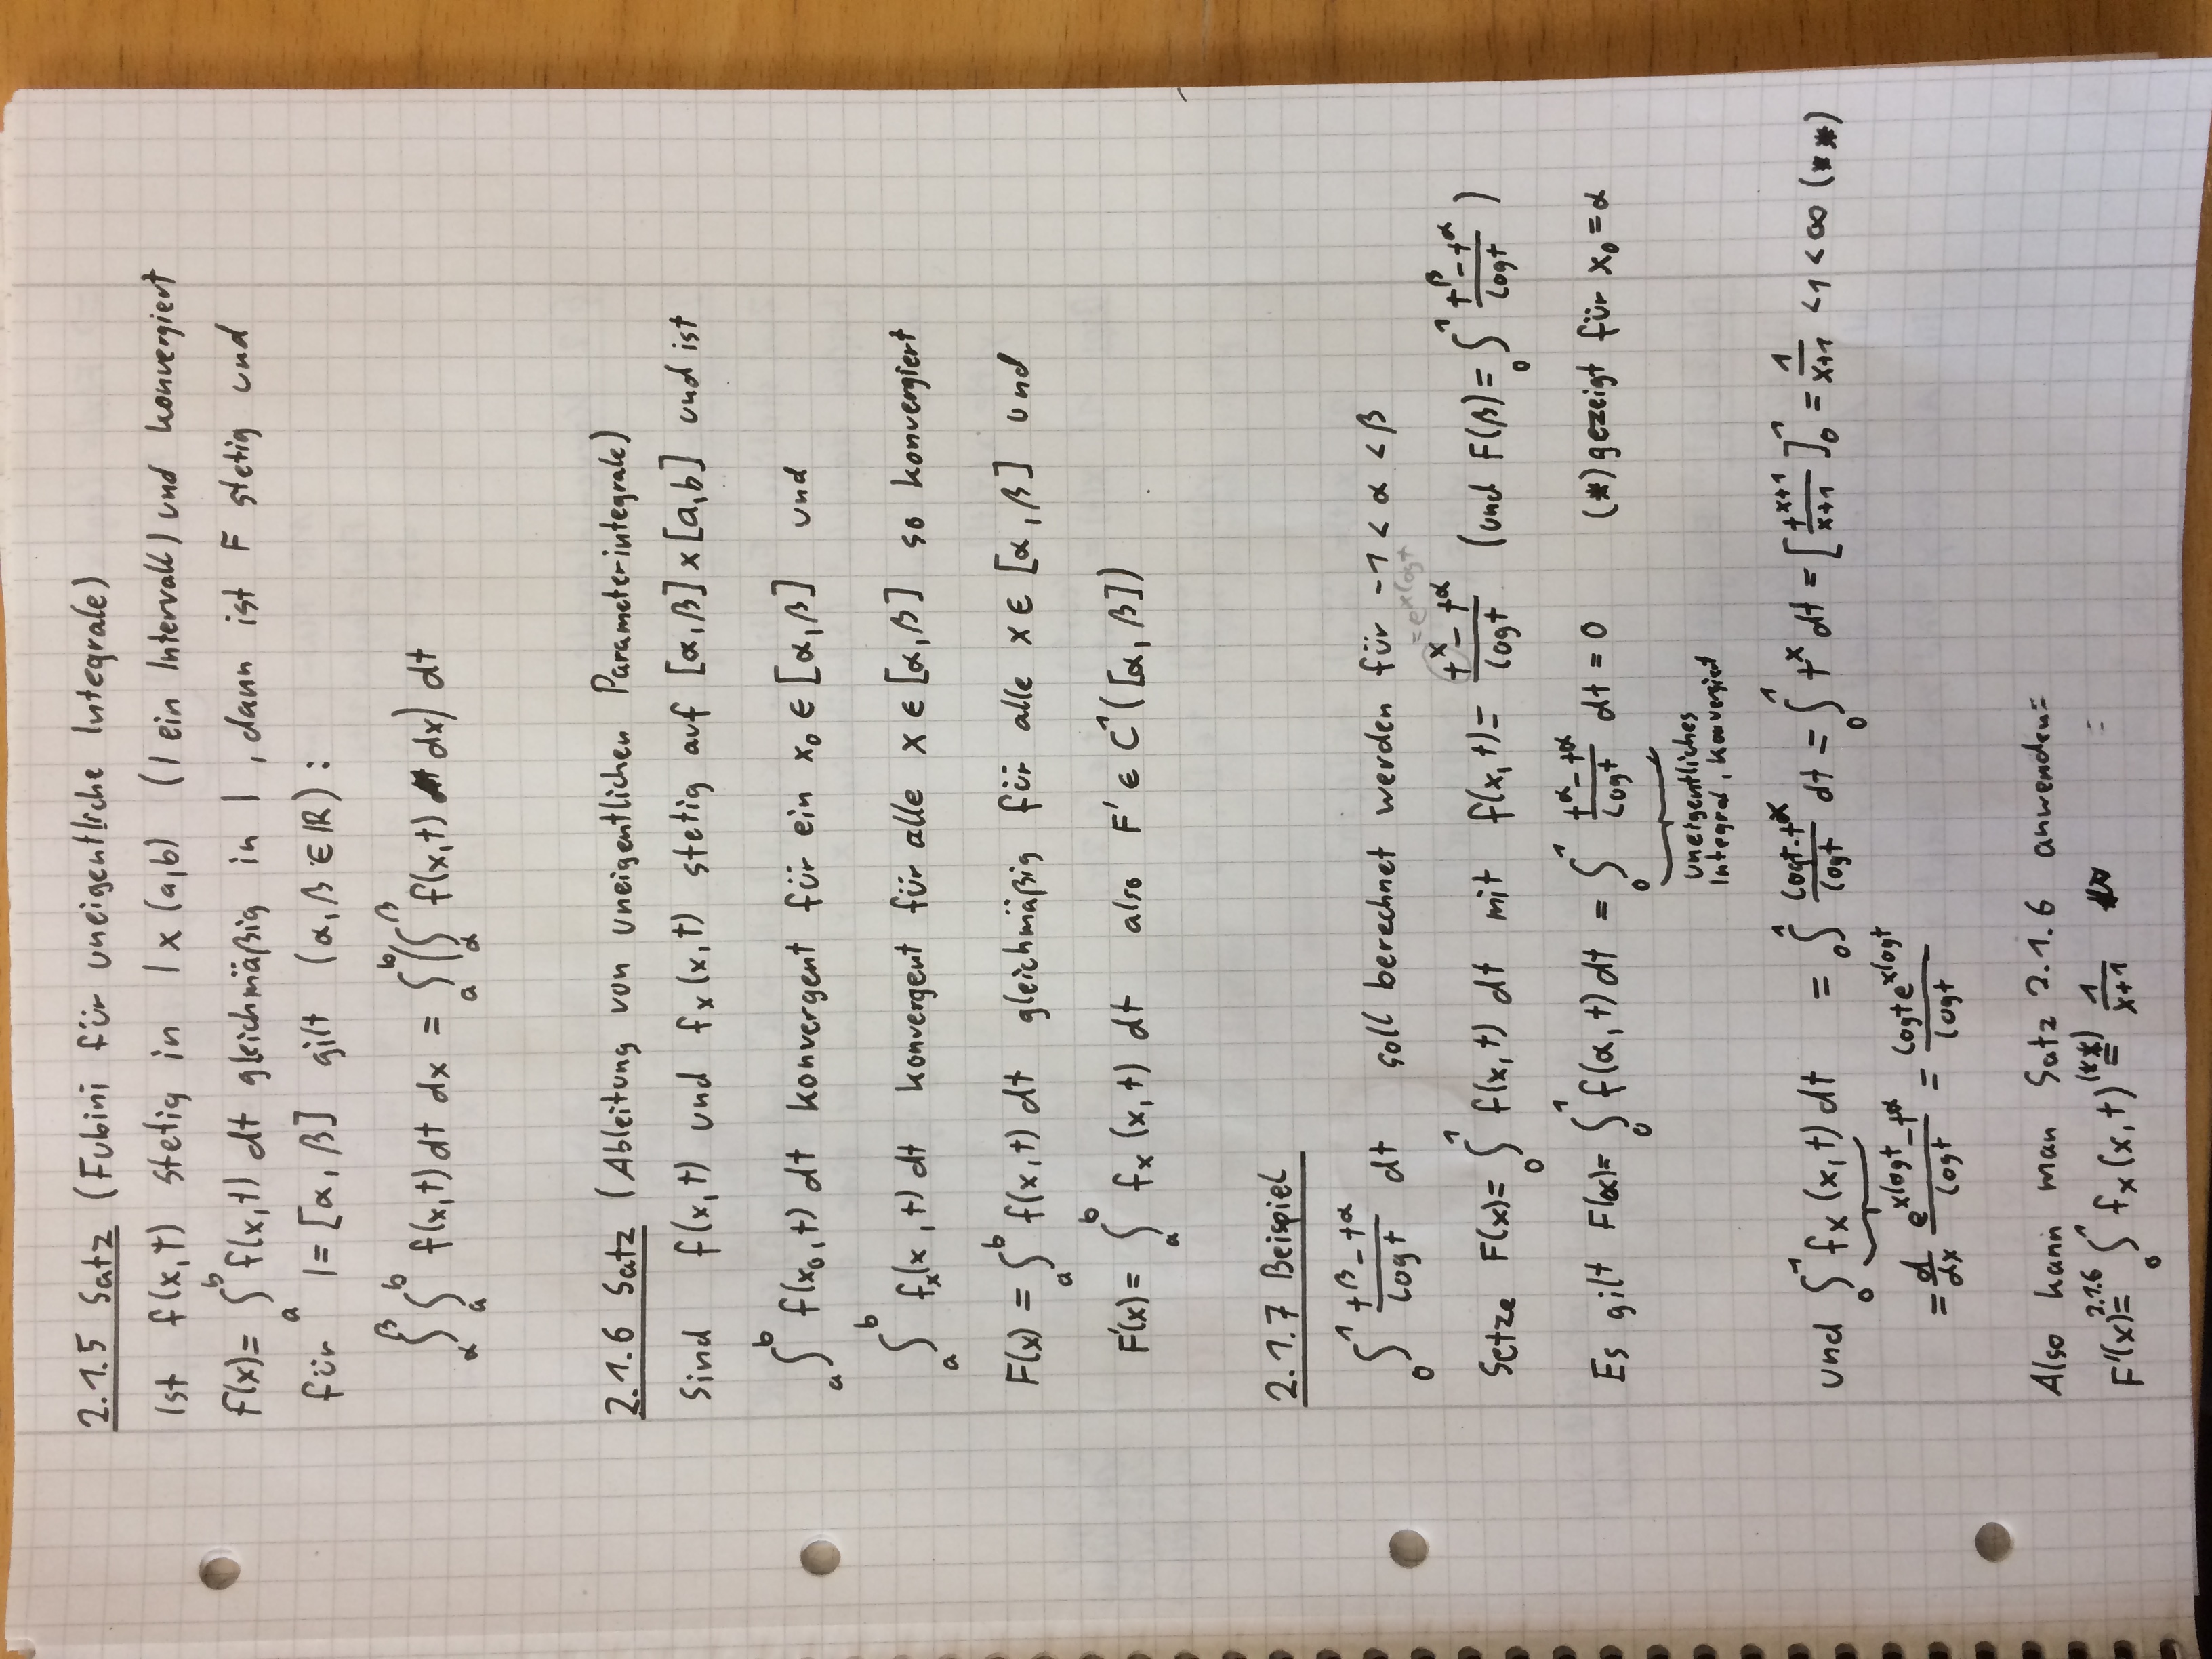 2.1.5 Satz (Fubini für uneigentliche Integrale)
Ist f(x,t) stetig in I x (a,b) (I ein Intervall) und konvergiert
F(x)= ∫_a^b f(x,t) dt gleichmäßig in I, dann ist F stetig und
für I=[α,β] gilt (α,β ∈ ℝ):
∫_α^β ∫_a^b f(x,t) dt dx = ∫_a^b (∫_α^β f(x,t) dx) dt
2.1.6 Satz (Ableitung von uneigentlichen Parameterintegrale)
Sind f(x,t) und f_x(x,t) stetig auf [α,β] x [a,b] und ist
∫_a^b f(x_0,t) dt konvergent für ein x_0 ∈ [α,β] und
∫_a^b f_x(x,t) dt konvergent für alle x ∈ [α,β] so konvergiert
F(x) = ∫_a^b f(x,t) dt gleichmäßig für alle x ∈ [α,β] und
F'(x) = ∫_a^b f_x(x,t) dt also F' ∈ C^1([α,β])
2.1.7 Beispiel
∫_0^1 (t^β - t^α)/(log t) dt soll berechnet werden für -1 < α < β
= e^{x log t}
Setze F(x)= ∫_0^1 f(x,t) dt mit f(x,t)= (t^x - t^α)/(log t) (und F(β)= ∫_0^1 (t^β - t^α)/(log t))
Es gilt F(α)= ∫_0^1 f(α,t) dt = ∫_0^1 (t^α - t^α)/(log t) dt = 0 (*) gezeigt für x_0 = α
uneigentliches
Integral, konvergiert
und ∫_0^1 f_x(x,t) dt = ∫_0^1 (log t · t^x)/(log t) dt = ∫_0^1 t^x dt = [t^{x+1}/(x+1)]_0^1 = 1/(x+1) < 1 < ∞ (**)
= d/dx (e^{x log t} - t^α)/(log t) = (log t e^{x log t})/(log t)
Also kann man Satz 2.1.6 anwenden:
F'(x) =^{2.1.6} ∫_0^1 f_x(x,t) =^{(**)} 1/(x+1)